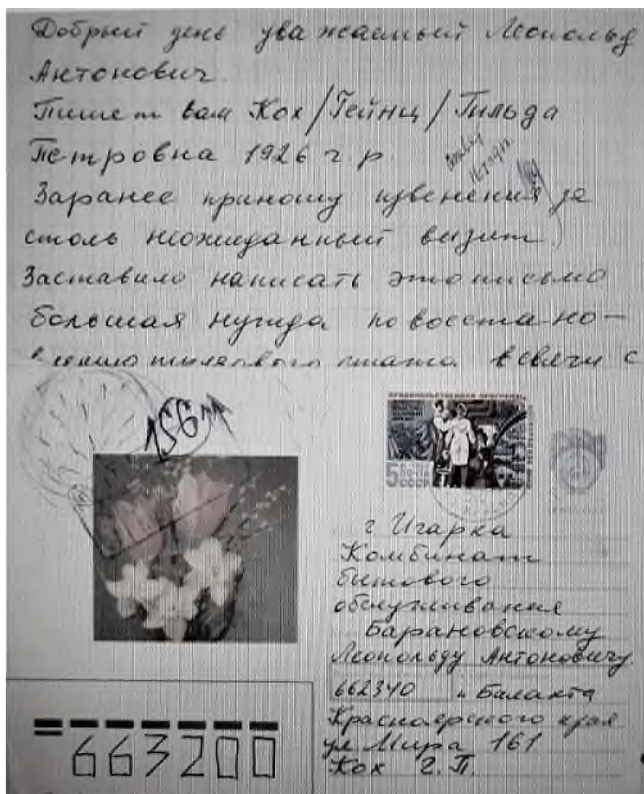 Добрый день уважаемый Леопольд
Антонович.
Пишет вам Кох/Гейнц/Гильда
Петровна 1926 г р
Заранее приношу извенения за
столь неожиданный визит.
Заставило написать это письмо
большая нужда по восстано-
в связи с
156
5
ПОЧТА
СССР
г Игарка
Комбинат
бытового
обслуживания
Барановскому
Леопольду Антоновичу
662340 п Балахта
Красноярского края
ул Мира 161
Кох Г.П.
663200